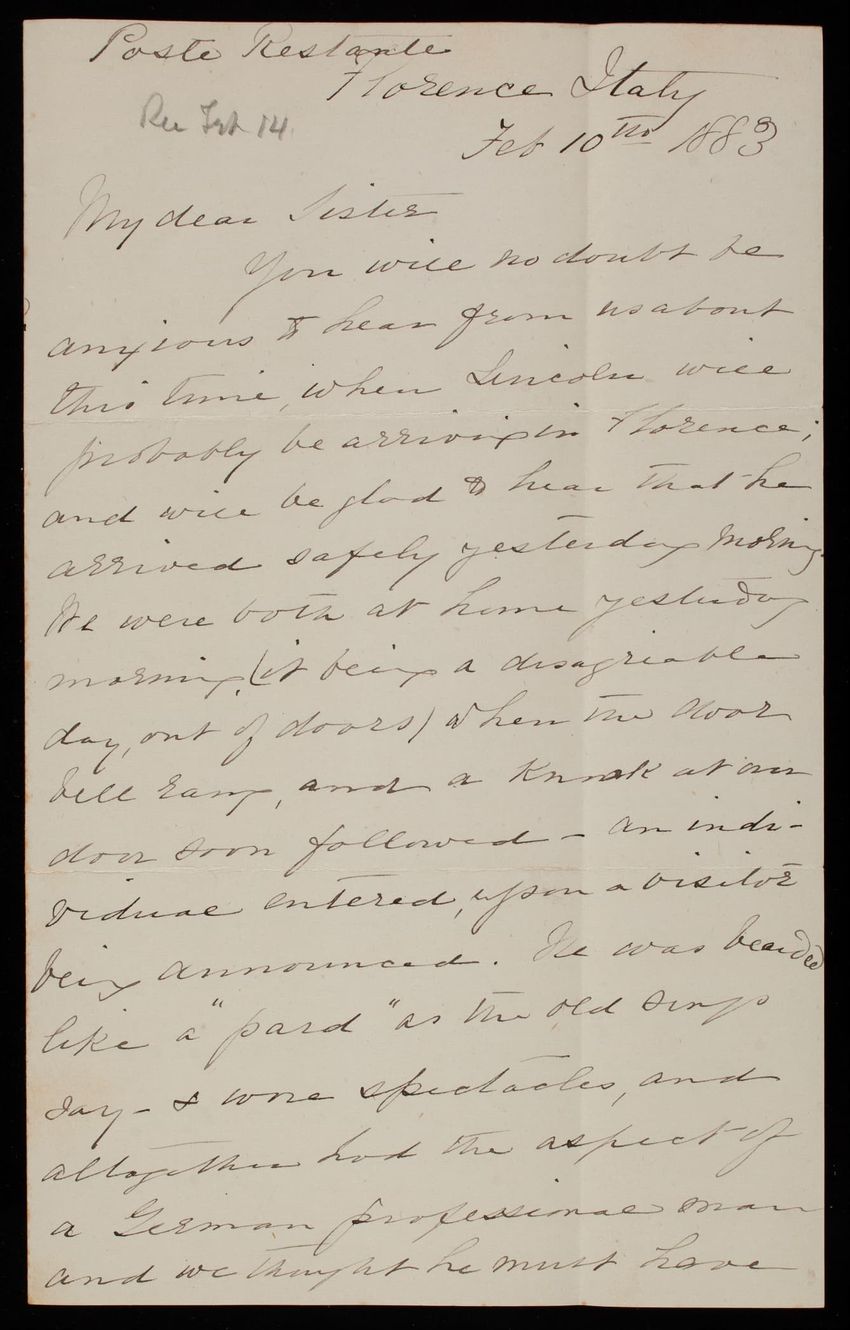 Poste Restante
Florence Italy
Rec Feb 14.
Feb 10th 1883
My dear Sister
You will no doubt be
anxious to hear from us about
this time, when Lincoln will
probably be arriving in Florence;
and will be glad to hear that he
arrived safely yesterday morning.
We were both at home yesterday
morning, (it being a disagreable
day, out of doors) when the door
bell rang, and a knock at our
door soon followed - an indi-
vidual entered, upon a visitor
being announced. He was bearded
like a "pard" as the old songs
say - & wore spectacles, and
altogether had the aspect of
a German professional man
and we thought he must have